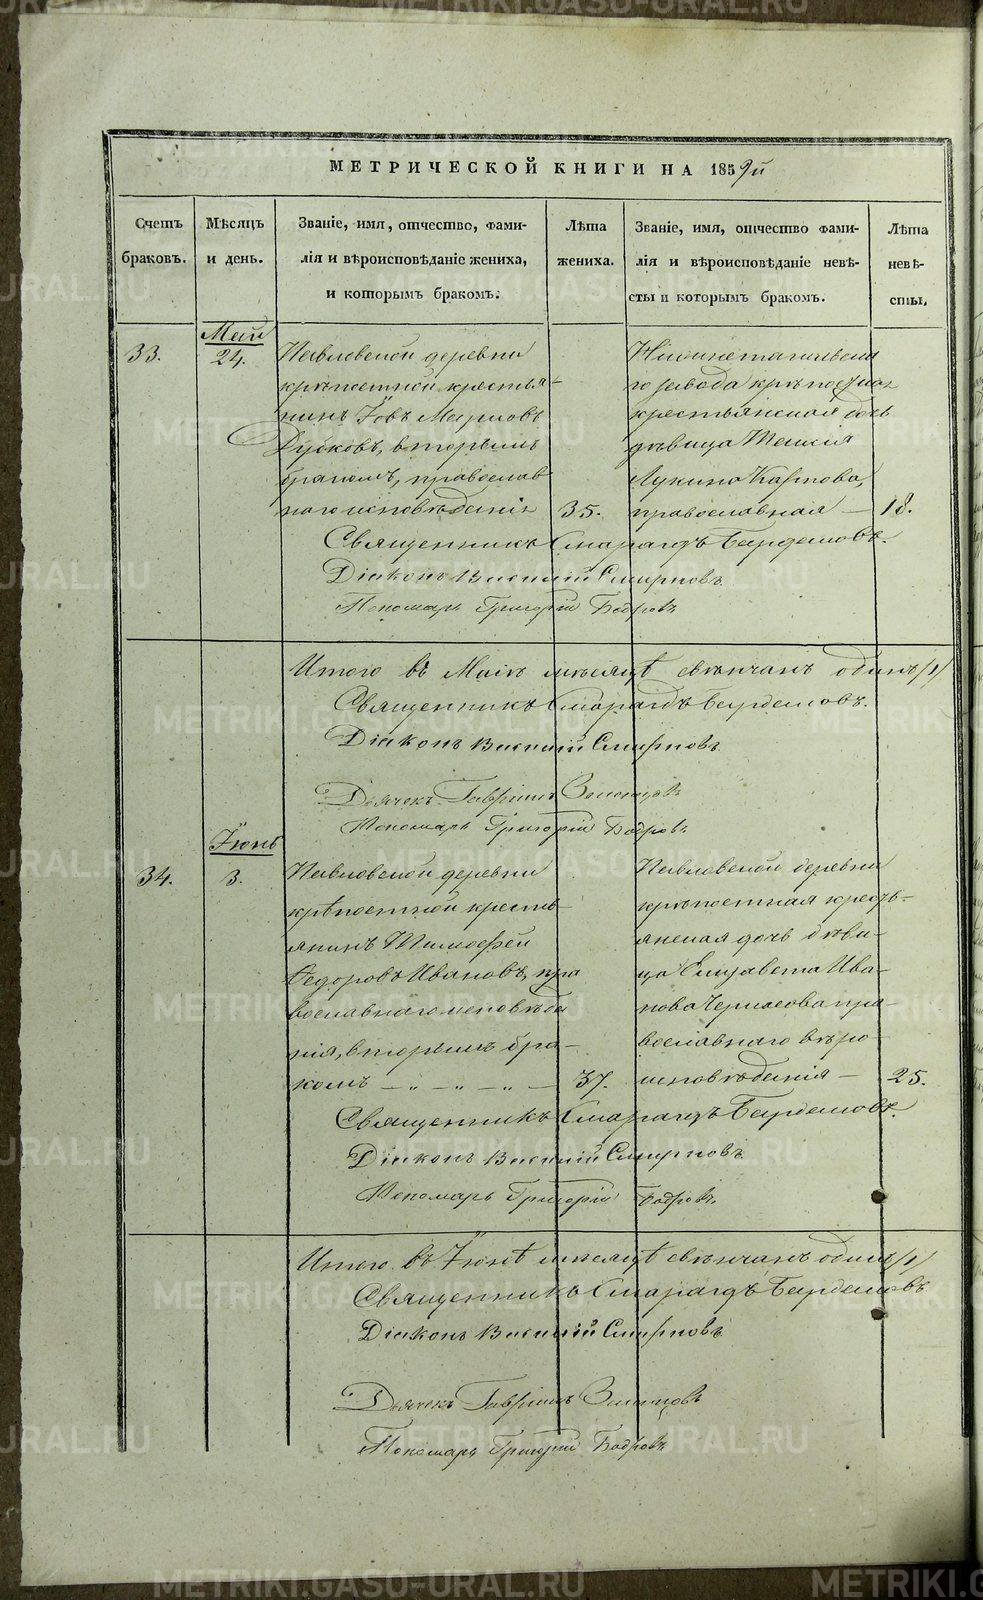 МЕТРИЧЕСКОЙ КНИГИ НА 1859й
Счетъ браковъ.
Мѣсяцъ и день.
Званіе, имя, отчество, фами-
лія и вѣроисповѣданіе жениха,
и которымъ бракомъ.
Лѣта жениха.
Званіе, имя, отчество фами-
лія и вѣроисповѣданіе невѣ-
сты и которымъ бракомъ.
Лѣта невѣ-
сты.
33.
Май
24.
Павловской деревни
крѣпостной крестья-
нинъ Іовъ
вторымъ
бракомъ, православ
наго исповѣданія
35.
Нижнетагильска
го завода крѣпостная
крестьянская дочь
дѣвица
Лукина Карпова,
православная —
18.
Священникъ Смарагдъ
Діаконъ Василій Смирновъ
Пономарь Григорій Бобровъ
Итого въ Маіѣ мѣсяцѣ свѣнчанъ одинъ /1/
Священникъ Смарагдъ
Діаконъ Василій Смирновъ
Дьячекъ Гавріилъ
Пономарь Григорій Бобровъ
Іюнь
34.
3.
Павловской деревни
крѣпостной кресть-
янинъ Тимофей
Ѳедоровъ Ивановъ, пра
вославнаго исповѣда
нія, вторымъ бра-
комъ — „ — „ — „ —
37.
Павловской деревни
крѣпостная кресть-
янская дочь дѣви-
ца Елизавета Ива-
нова пра-
вославнаго вѣро-
исповѣданія —
25.
Священникъ Смарагдъ
Діаконъ Василій Смирновъ
Пономарь Григорій Бобровъ
Итого въ Іюнѣ мѣсяцѣ свѣнчанъ одинъ /1/
Священникъ Смарагдъ
Діаконъ Василій Смирновъ
Дьячекъ Гавріилъ
Пономарь Григорій Бобровъ
METRIKI.GASO-URAL.RU